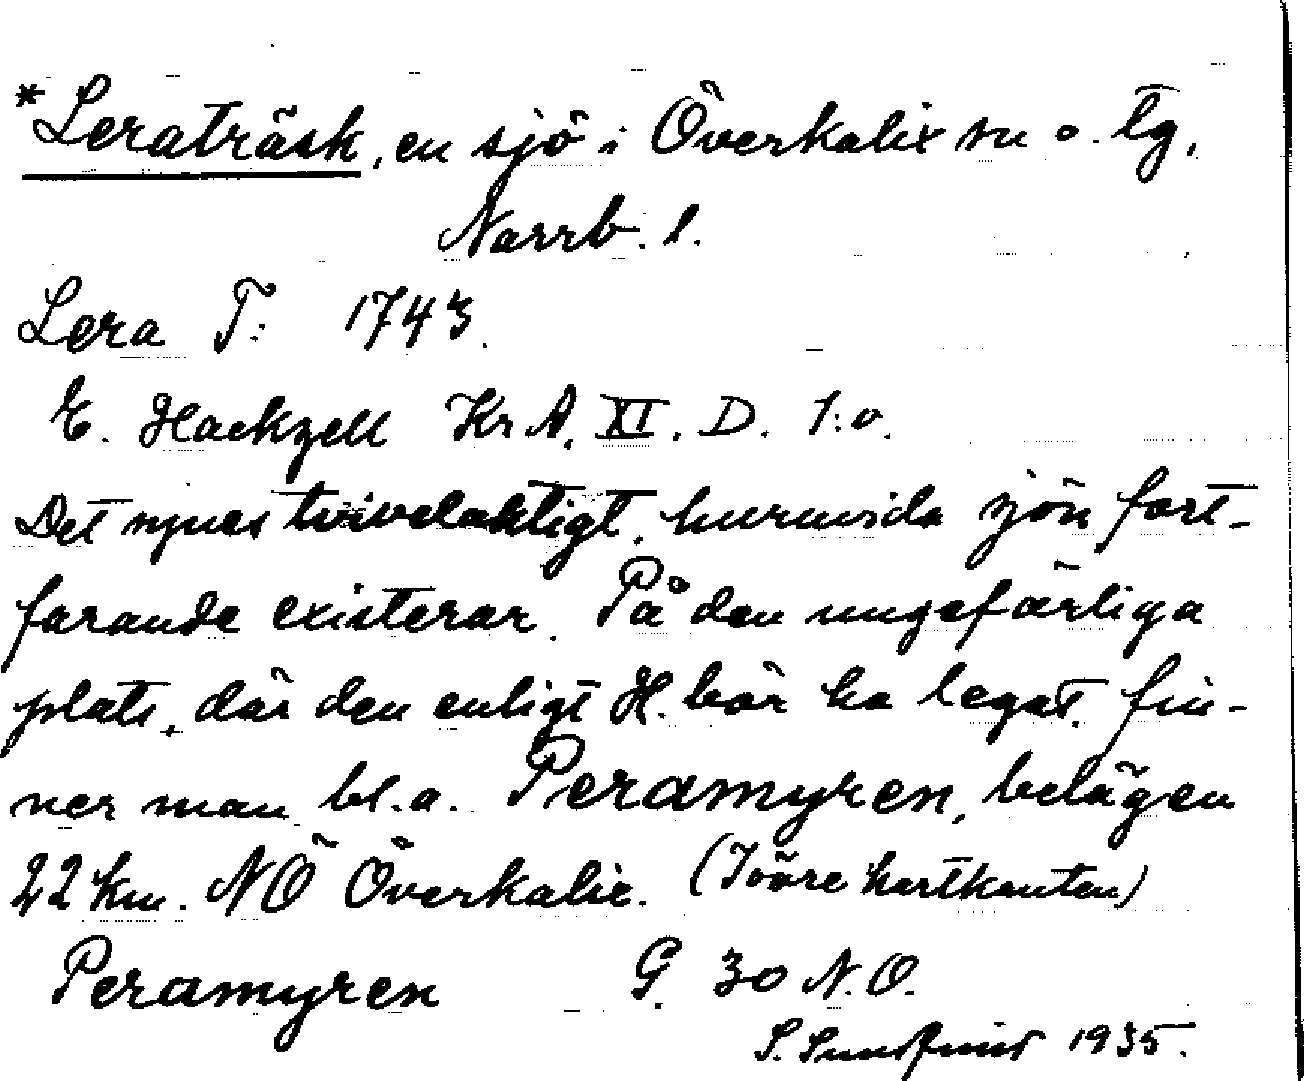 *Leraträsk, en sjö i Överkalix sn o. tg,
Norrb. l.
Lera T: 1743.
E. Hackzell Kr A. XI. D. 1:o.
Det synes tvivelaktigt, huruvida sjön fort-
farande existerar. På den ungefärliga
plats, där den enligt H. bör ha legat, fin-
ner man bl.a. Peramyren, belägen
22 km. NÖ Överkalix. (I övre kartkanten)
Peramyren G. 30 N.O.
S. 1935.